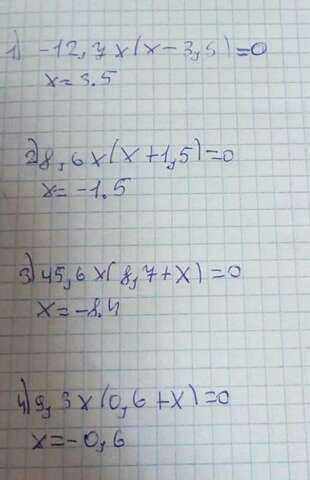 1) -12,7x(x-3,5)=0
x=3.5
2) 8,6x(x+1,5)=0
x=-1.5
3) 45,6x(8,7+x)=0
x=-8.4
4) 9,3x(0,6+x)=0
x=-0,6